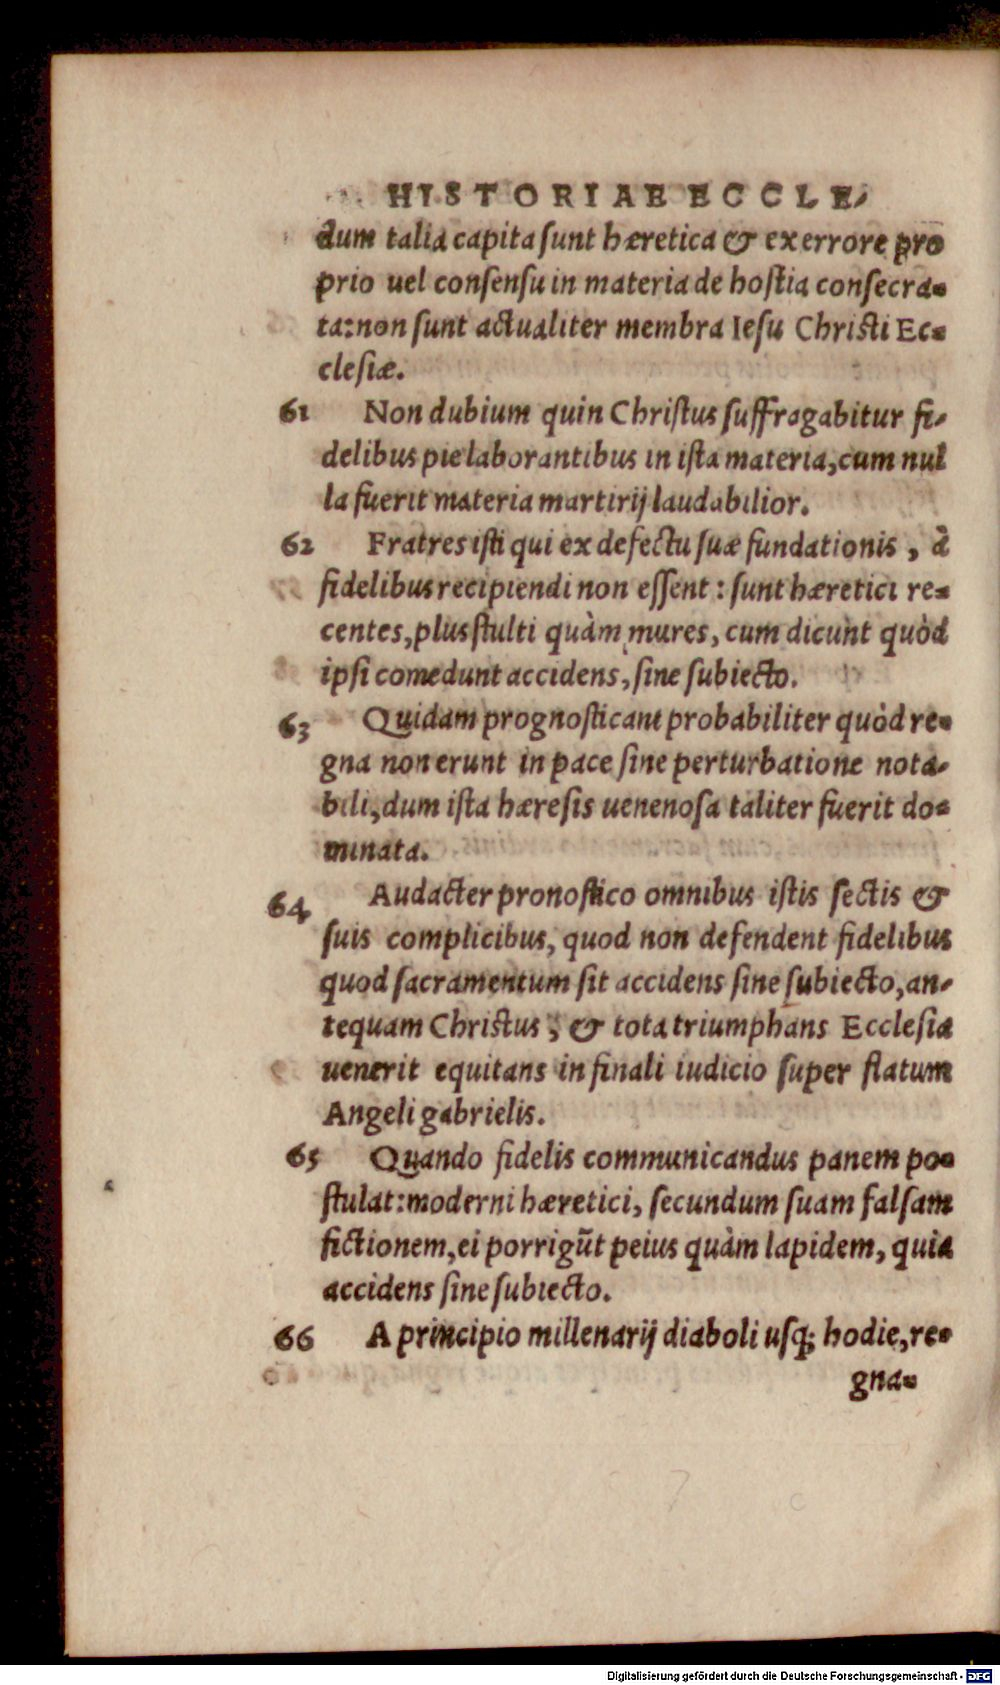 HISTORIAE ECCLE-
dum talia capita sunt hæretica & ex errore pro
prio uel consensu in materia de hostia consecra-
ta: non sunt actualiter membra Iesu Christi Ec-
clesiæ.
61 Non dubium quin Christus suffragabitur fi-
delibus pie laborantibus in ista materia, cum nul
la fuerit materia martirij laudabilior.
62 Fratres isti qui ex defectu suæ fundationis, à
fidelibus recipiendi non essent: sunt hæretici re-
centes, plus stulti quàm mures, cum dicunt quòd
ipsi comedunt accidens, sine subiecto.
63 Quidam prognosticant probabiliter quòd re-
gna non erunt in pace sine perturbatione nota-
bili, dum ista hæresis uenenosa taliter fuerit do-
minata.
64 Audacter pronostico omnibus istis sectis &
suis complicibus, quod non defendent fidelibus
quod sacramentum sit accidens sine subiecto, an-
tequam Christus, & tota triumphans Ecclesia
uenerit equitans in finali iudicio super flatum
Angeli gabrielis.
65 Quando fidelis communicandus panem po-
stulat: moderni hæretici, secundum suam falsam
fictionem, ei porrigũt peius quàm lapidem, quia
accidens sine subiecto.
66 A principio millenarij diaboli usq; hodie, re-
gna-
Digitalisierung gefördert durch die Deutsche Forschungsgemeinschaft - DFG